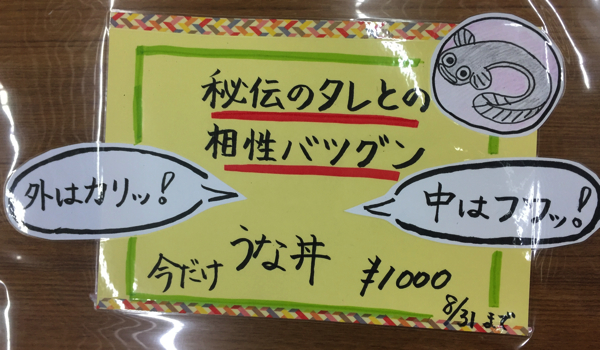 秘伝のタレとの
相性バツグン
外はカリッ!
中はフワッ!
うな丼
今だけ
¥1000
8/31まで